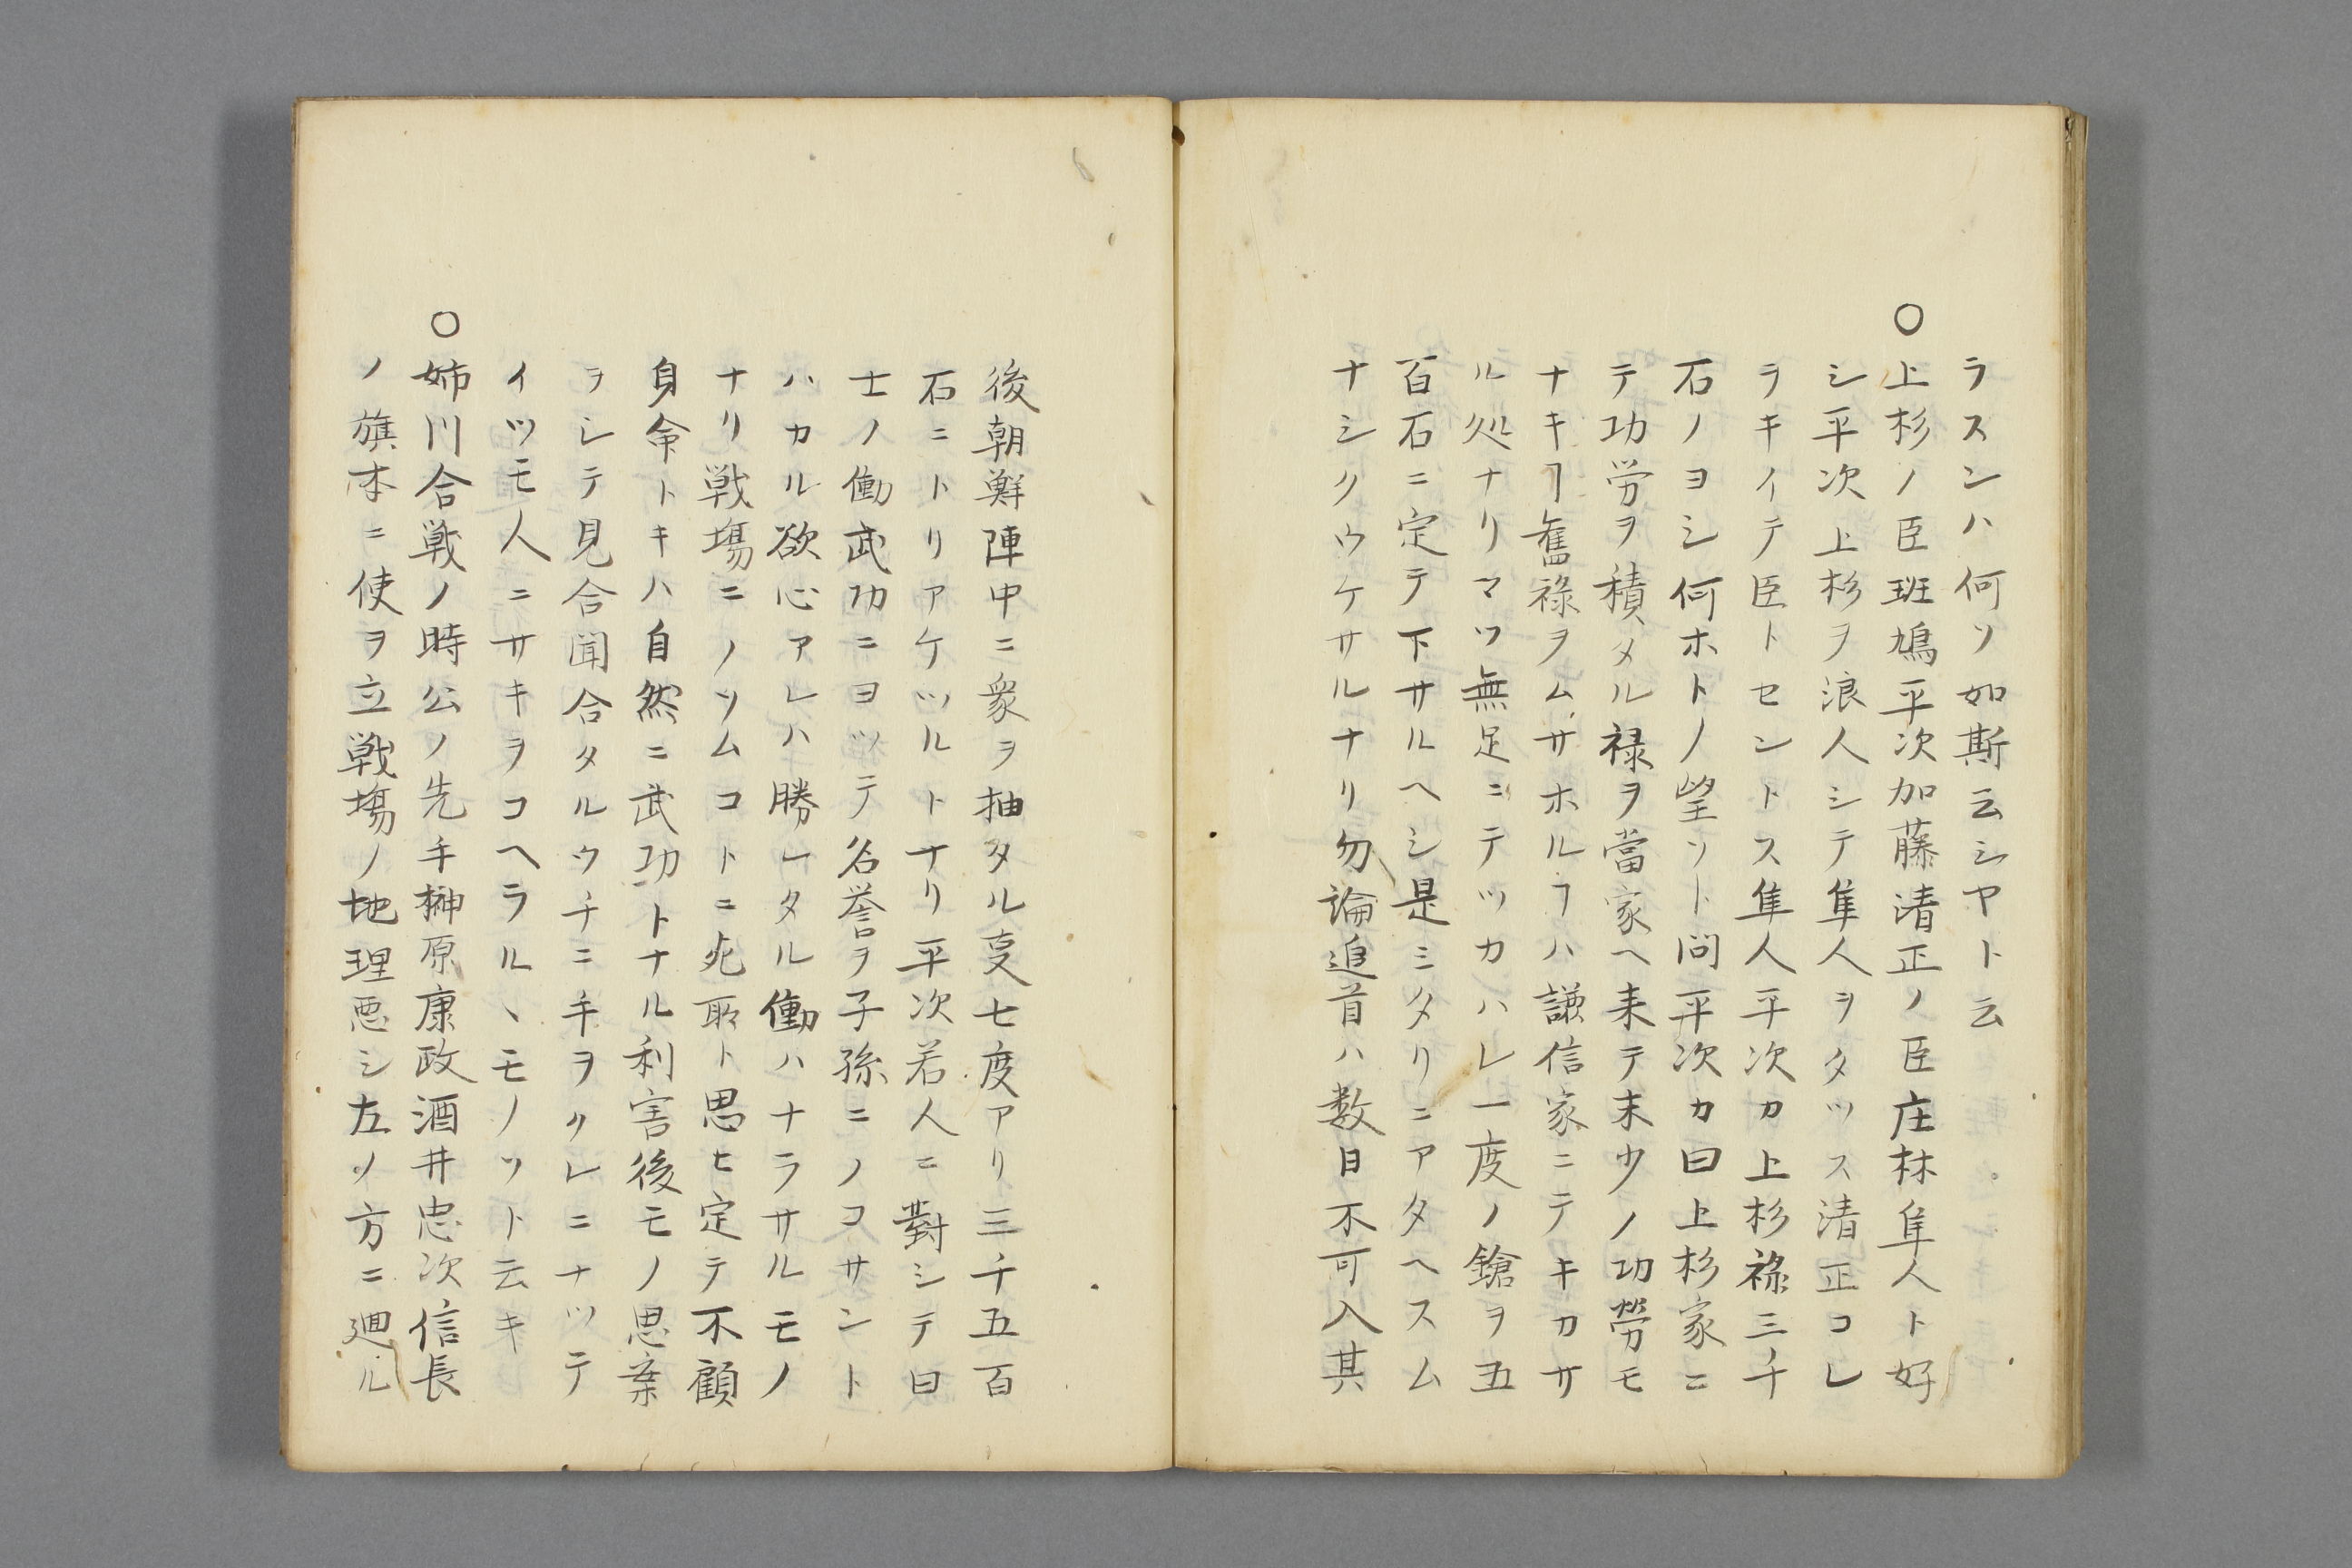 ラスンハ何ソ如斯云シヤト云
〇上杉ノ臣班鳩平次加藤清正ノ臣庄林隼人ト好
シ平次上杉ヲ浪人シテ隼人ヲタツス清正コレ
ヲキイテ臣トセントス隼人平次カ上杉祿三千
石ノヨシ何ホトノ望ソト問平次カ曰上杉家ニ
テ功労ヲ積メル禄ヲ當家ヘ来テ末少ノ功勞モ
ナキヿ舊祿ヲムサホルヿハ謙信家ニテキカサ
ル処ナリマツ無足ニテツカハレ一度ノ鎗ヲ五
百石ニ定テ下サルヘシ是ミタリニアタヘスム
ナシクウケサルナリ勿論追首ハ数日不可入其
後朝鮮陣中ニ衆ヲ抽タル叓七度アリ三千五百
石ニトリアケツルトナリ平次若人ニ對シテ曰
士ノ働武功ニヨツテ名誉ヲ子孫ニノコサント
ハカル欲心アレハ勝レタル働ハナラサルモノ
ナリ戦塲ニノソムコトニ死耻ト思ヒ定テ不顧
身命トキハ自然ニ武功トナル利害後モノ思案
ヲシテ見合聞合タルウチニ手ヲクレニナツテ
イツモ人ニサキヲコヘラルヽモノソト云キ
〇姉川合戦ノ時公ノ先手榊原康政酒井忠次信長
ノ旗本ニ使ヲ立戦塲ノ地理悪シ左ソ方ニ廻ル